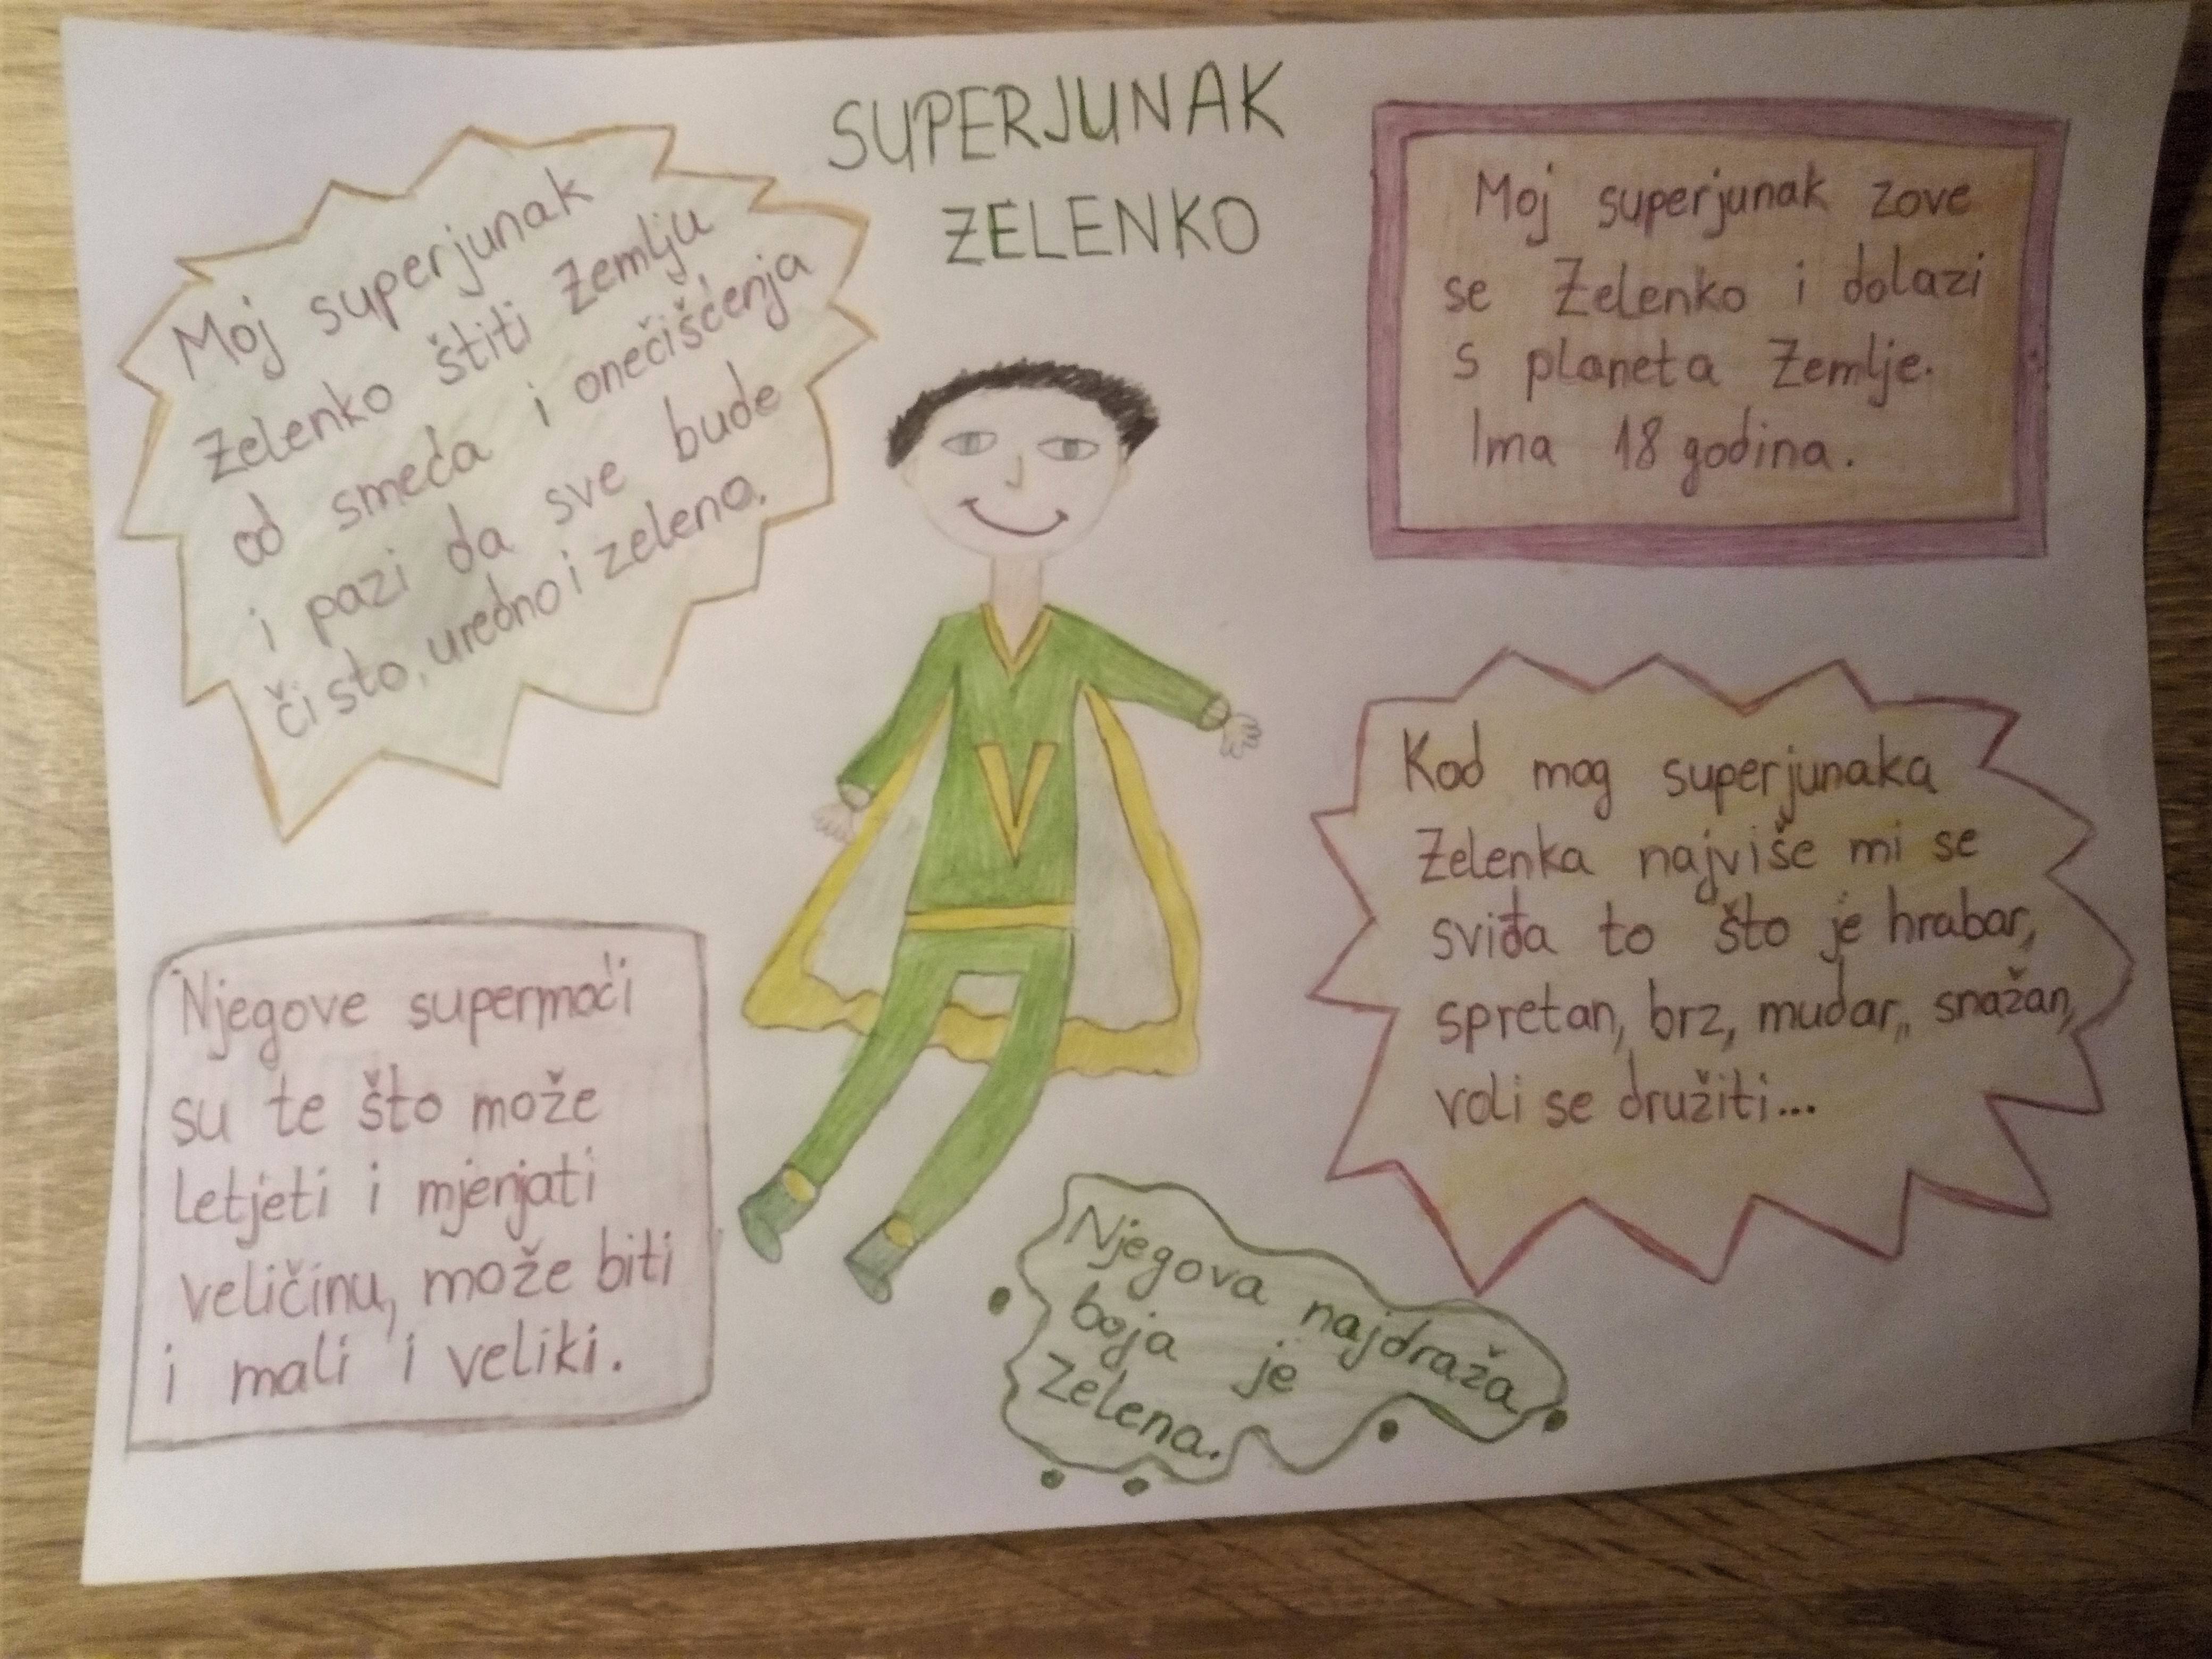 SUPERJUNAK
ZELENKO
Moj superjunak
Zelenko štiti Zemlju
od smeća i onečišćenja
i pazi da sve bude
čisto, uredno i zeleno.
Moj superjunak zove
se Zelenko i dolazi
s planeta Zemlje.
Ima 18 godina.
V
Kod mog superjunaka
Zelenka najviše mi se
sviđa to što je hrabar,
spretan, brz, mudar,, snažan,
voli se družiti...
Njegove supermoći
su te što može
letjeti i mjenjati
veličinu, može biti
i mali i veliki.
Njegova najdraža
boja je
zelena.